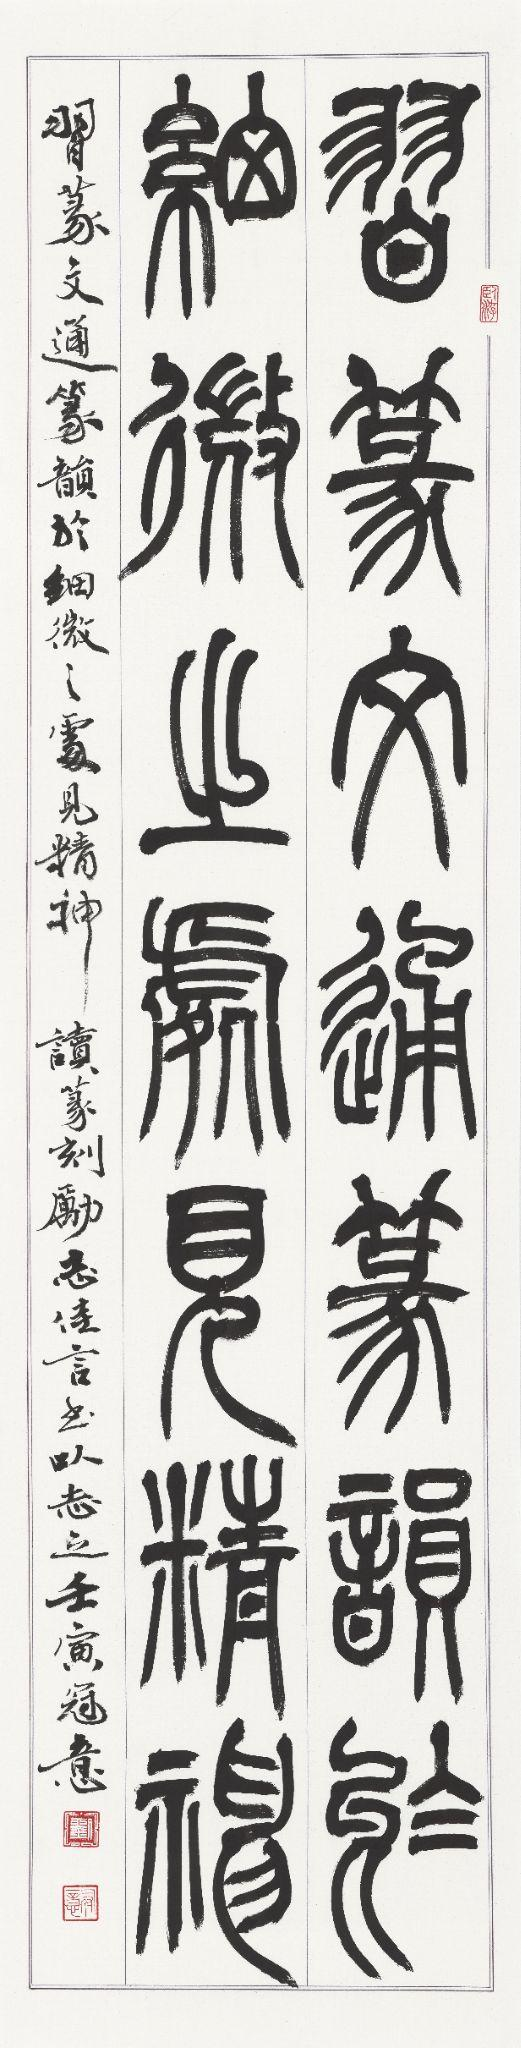 習篆文通篆韻於
細微之處見精神
習篆文通篆韻於細微之處見精神 讀篆刻勵志佳言書以志之壬寅冠意
臥游
冠意